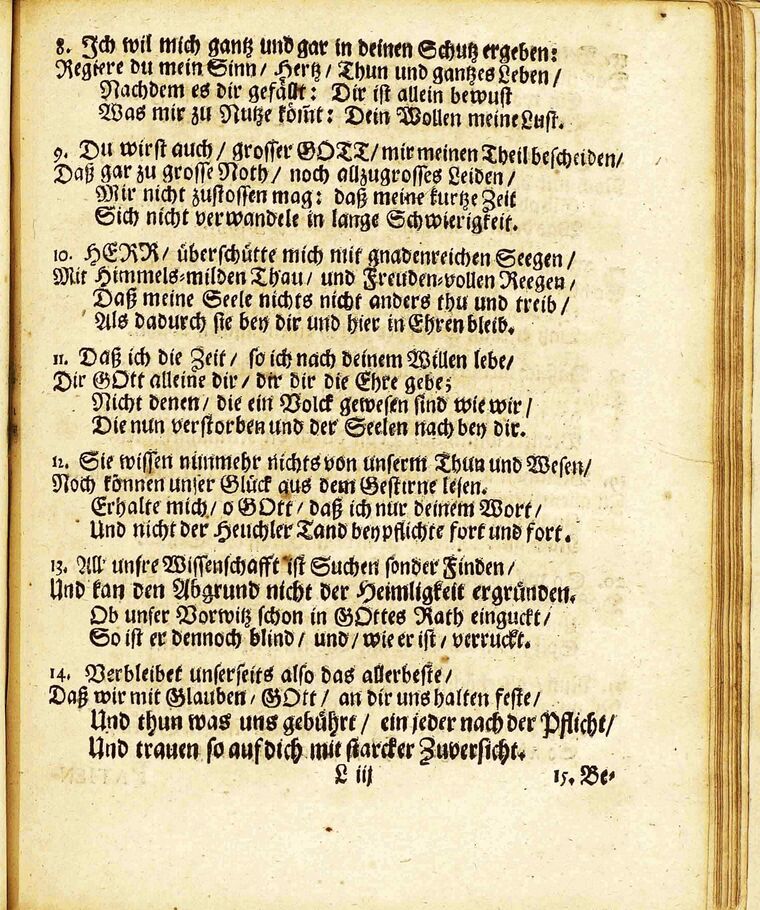 8. Ich wil mich gantz und gar in deinen Schutz ergeben:
Regiere du mein Sinn/ Hertz/ Thun und gantzes Leben/
Nachdem es dir gefällt: Dir ist allein bewust
Was mir zu Nutze köm̃t: Dein Wollen meine Lust.
9. Du wirst auch/ grosser GOTT/ mir meinen Theil bescheiden/
Daß gar zu grosse Noth/ noch allzugrosses Leiden/
Mir nicht zustossen mag: daß meine kurtze Zeit
Sich nicht verwandele in lange Schwierigkeit.
10. HERR/ überschütte mich mit gnadenreichen Seegen/
Mit Himmels-milden Thau/ und Freuden-vollen Reegen/
Daß meine Seele nichts nicht anders thu und treib/
Als dadurch sie bey dir und hier in Ehren bleib.
11. Daß ich die Zeit/ so ich nach deinem Willen lebe/
Dir GOtt alleine dir/ dir dir die Ehre gebe;
Nicht denen/ die ein Volck gewesen sind wie wir/
Die nun verstorben und der Seelen nach bey dir.
12. Sie wissen nunmehr nichts von unserm Thun und Wesen/
Noch können unser Glück aus dem Gestirne lesen.
Erhalte mich/ o GOtt/ daß ich nur deinem Wort/
Und nicht der Heuchler Tand beypflichte fort und fort.
13. All' unsre Wissenschafft ist Suchen sonder Finden/
Und kan den Abgrund nicht der Heimligkeit ergründen.
Ob unser Vorwitz schon in GOttes Rath einguckt/
So ist er dennoch blind/ und/ wie er ist/ verruckt.
14. Verbleibet unserseits also das allerbeste/
Daß wir mit Glauben/ GOtt/ an dir uns halten feste/
Und thun was uns gebührt/ ein jeder nach der Pflicht/
Und trauen so auf dich mit starcker Zuversicht.
L iij
15. Be-